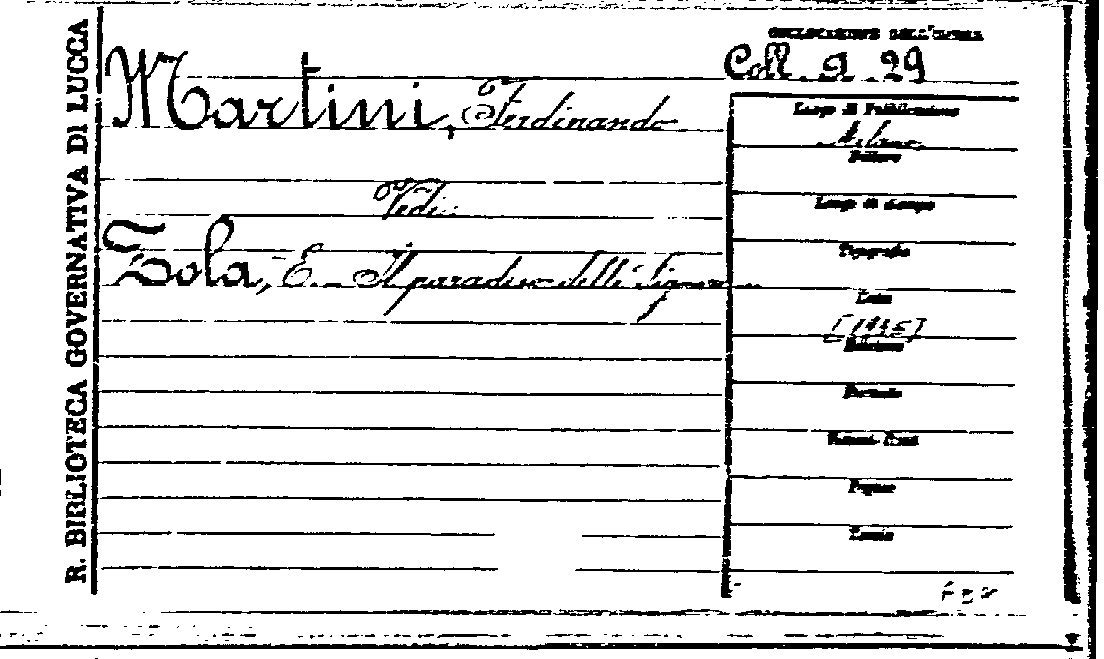 R. BIBLIOTECA GOVERNATIVA DI LUCCA
COLLOCAZIONE DELL'OPERA
Coll. 9. 29
Martini, Ferdinando
Vedi:
Zola, E. - Il paradiso delle Signore
Luogo di Pubblicazione
Milano
Editore
Luogo di stampa
Tipografo
Data
Edizione
Formato
Pagine